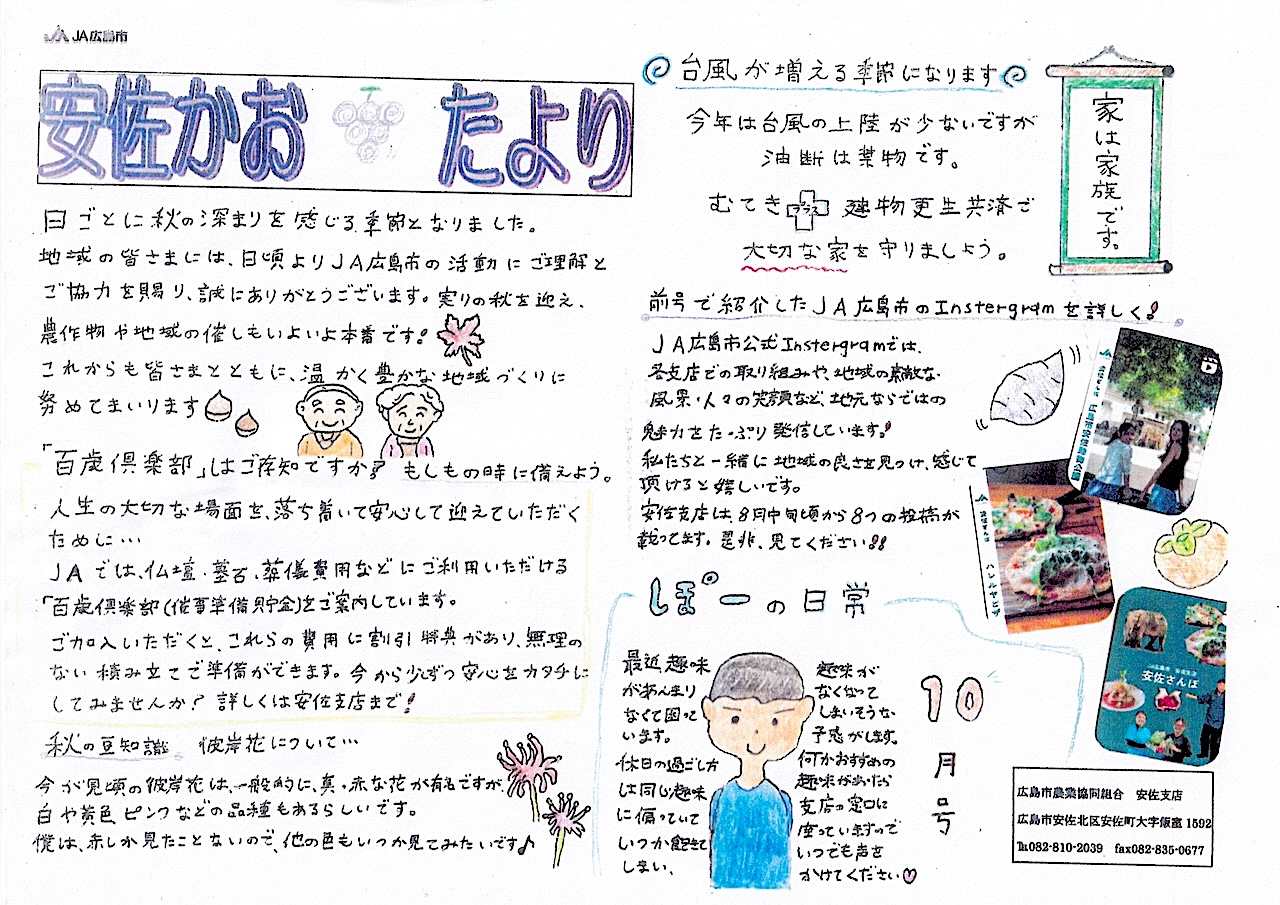 JA広島市
安佐かお たより
日ごとに秋の深まりを感じる季節となりました。
地域の皆さまには、日頃よりJA広島市の活動にご理解と
ご協力を賜り、誠にありがとうございます。実りの秋を迎え、
農作物や地域の催しもいよいよ本番です!
これからも皆さまとともに、温かく豊かな地域づくりに
努めてまいります
「百歳倶楽部」はご存知ですか? もしもの時に備えよう。
人生の大切な場面を、落ち着いて安心して迎えていただく
ために…
JAでは、仏壇・墓石・葬儀費用などにご利用いただける
「百歳倶楽部(催事準備貯金)をご案内しています。
ご加入いただくと、これらの費用に割引特典があり、無理の
ない積み立てで準備ができます。今から少しずつ安心をカタチに
してみませんか? 詳しくは安佐支店まで!
秋の豆知識 彼岸花について…
今が見頃の彼岸花は、一般的に、真・赤な花が有名ですが、
白や黄色ピンクなどの品種もあるらしいです。
僕は、赤しか見たことないので、他の色もいつか見てみたいです♪
台風が増える季節になります
今年は台風の上陸が少ないですが
油断は禁物です。
むてきプラス建物更生共済で
大切な家を守りましょう。
家は家族です。
前号で紹介したJA広島市のInstergramを詳しく!
JA広島市公式Instergramでは、
各支店での取り組みや、地域の素敵な
風景・人々の笑顔など、地元ならではの
魅力をたっぷり発信しています!
私たちと一緒に地域の良さを見つけ、感じて
頂けると嬉しいです。
安佐支店は、8月中旬頃から8つの投稿が
載ってます。是非、見てください!!
JA広島市 安佐支店
安佐さんぽ
ぽーの日常
最近趣味
があんまり
なくて困って
います。
休日の過ごし方
は同じ趣味
に偏っていて
いつか飽きて
しまい、
趣味が
なくなって
しまいそうな
予感がします。
何かおすすめの
趣味があったら
支店の窓口に
座っていますので
いつでも声を
かけてください♡
10月号
広島市農業協同組合 安佐支店
広島市安佐北区安佐町大字飯室1592
℡082-810-2039 fax082-835-0677